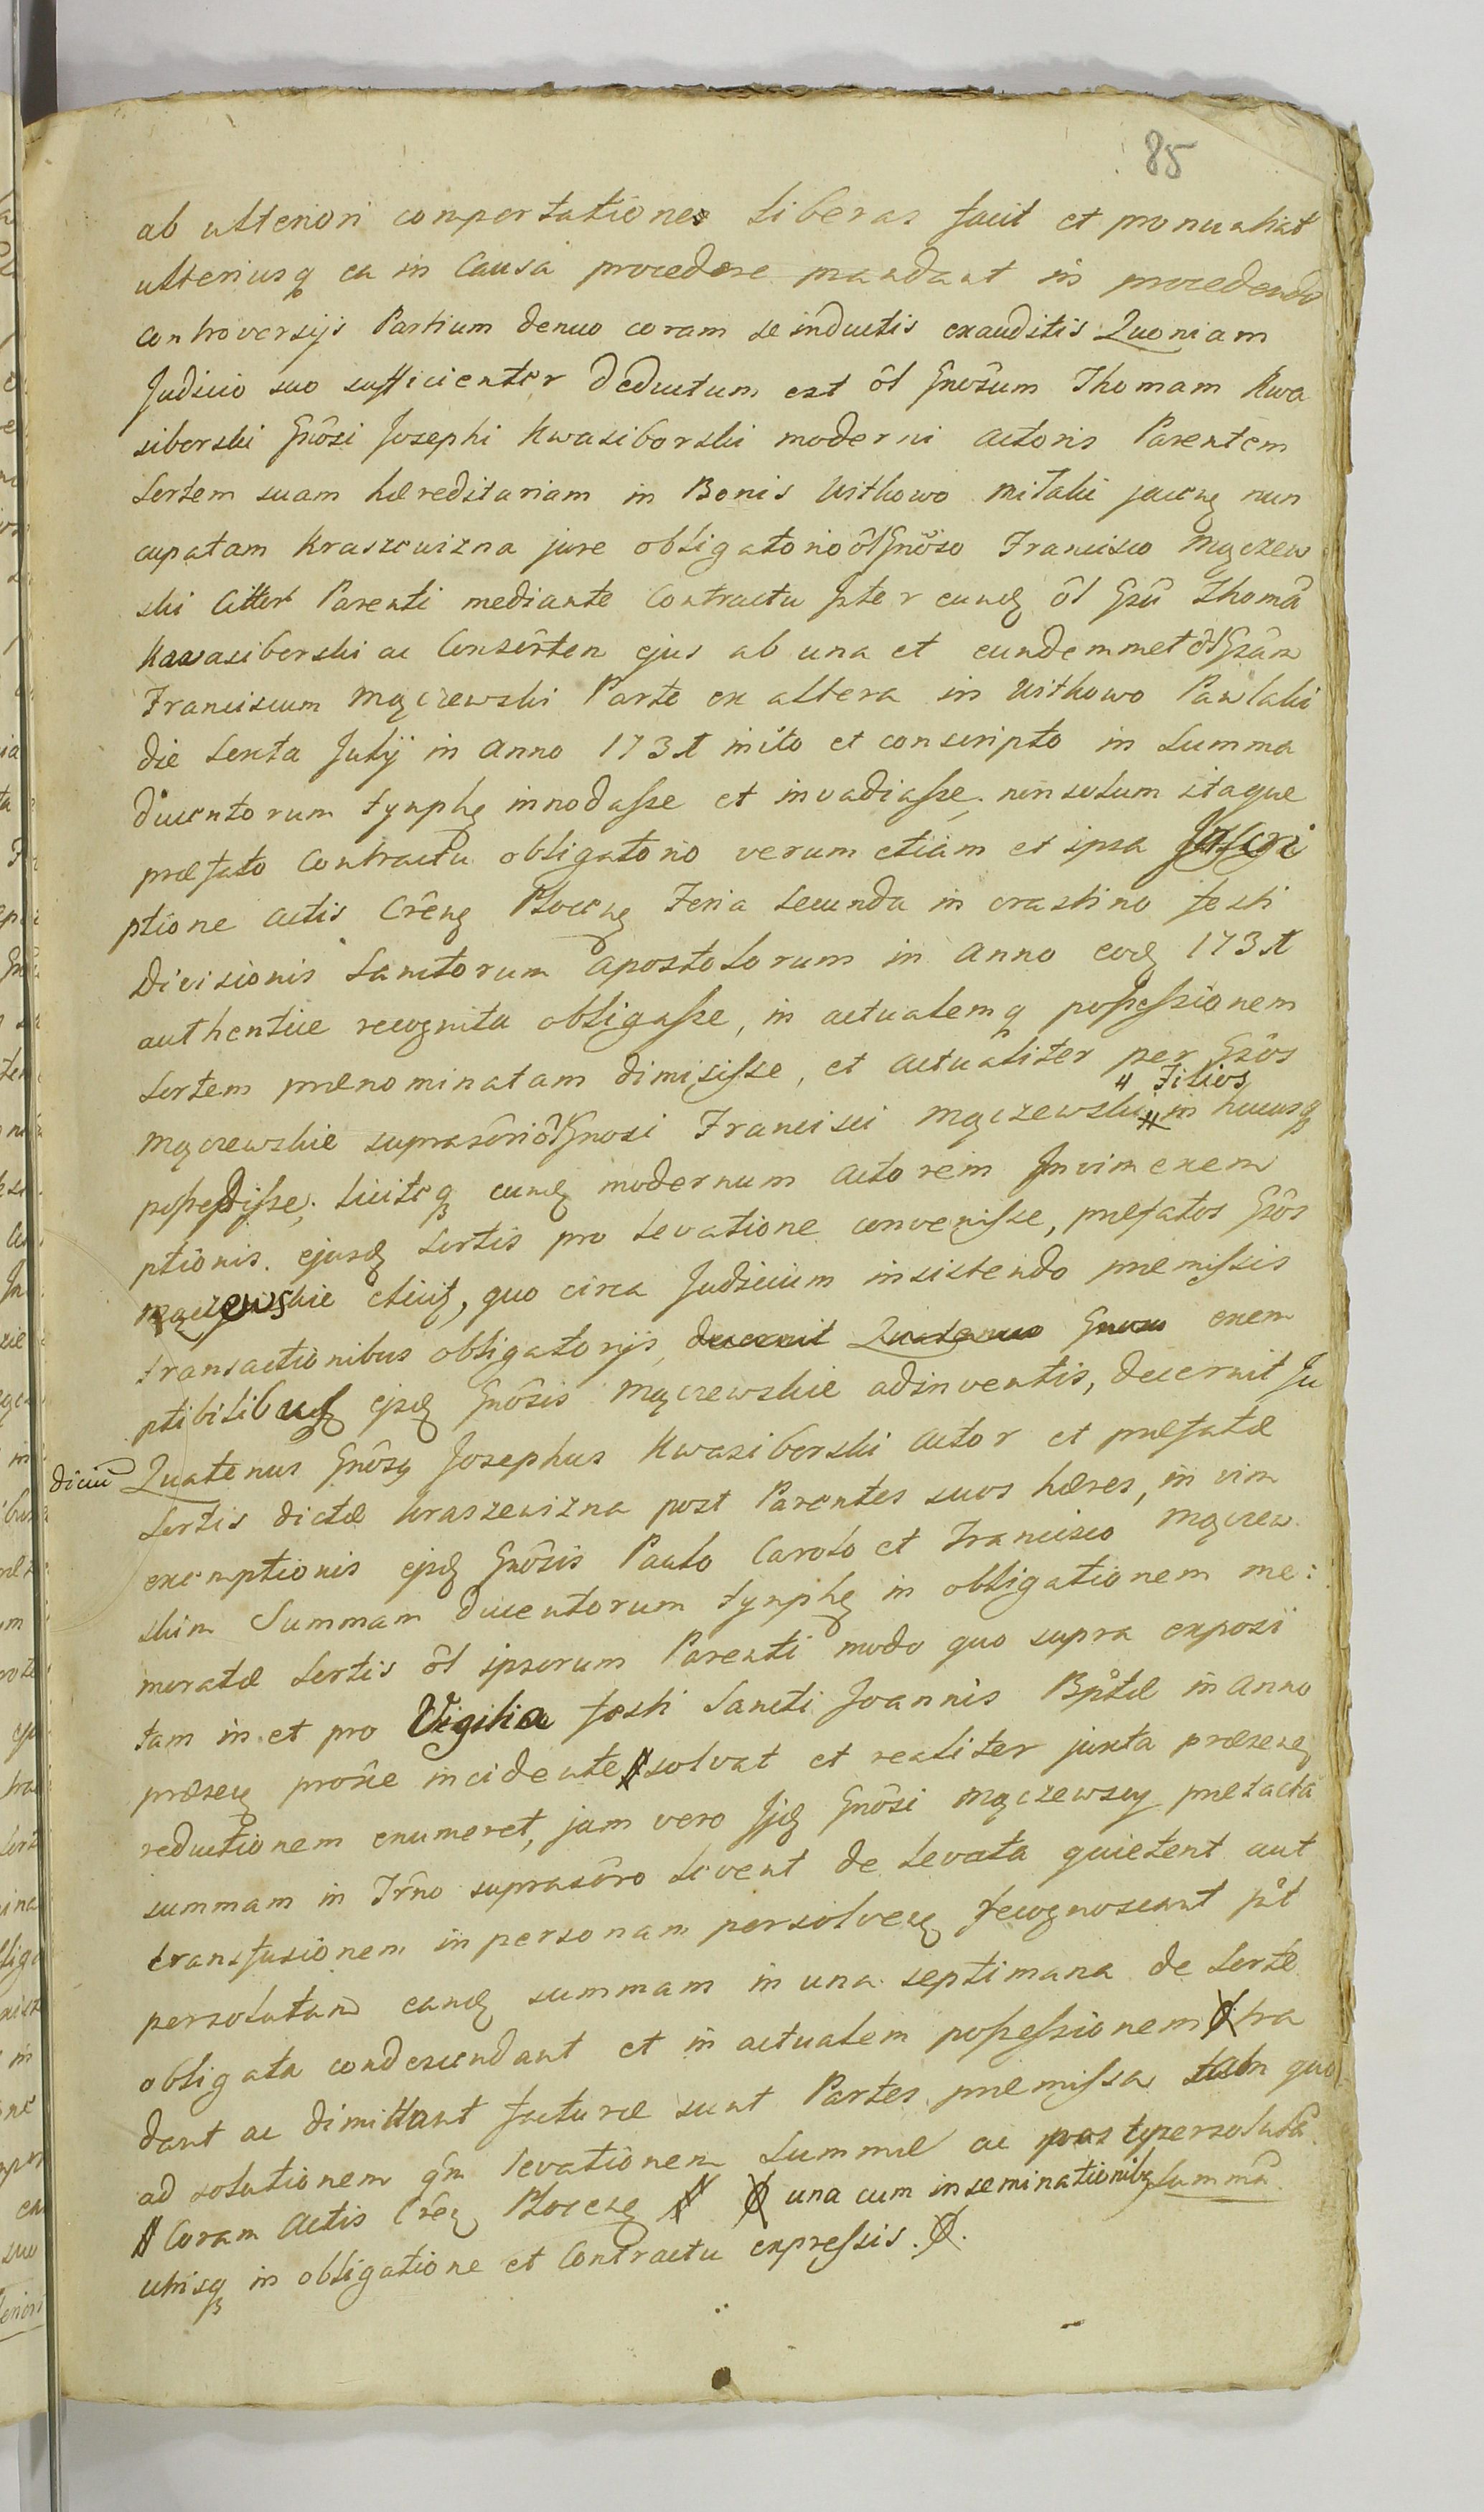 85
ab ulteriori comportatione liberas facit et pronuntiat
ulteriusq ea in Causa procedere mandant in procedendo
controversijs Partium denuo coram se inductis exauditis Quoniam
Judicio suo sufficienter deductum est ôl Gnôsum Thomam Kwa
siborski Gnôsi Josephi Kwasiborski moderni Actoris Parentem
Sortem suam hæreditariam in Bonis Witkowo mitaki jacenę nun
cupatam Kraszewizna jure obligatorio ôl Gnôso Francisco Mączew
ski Parenti mediante Contractu Inter eundę ôl Gsû Thomâ
Kwasiborski ac Consôrten ejus ab una et eundemmet ôl Gsûm
Franciscum Mączewski Parte ex altera in Witkowo Pawlaki
die Sexta Julij in Anno 173 inito et conscripto in Summa
Ducentorum tynphę innodasse et invadiasse, non solum itaque
præfato Contractu obligatorio verum etiam et ipsa Inscri
ptione Actis Crênę Plocenę Feria Secunda in crastino festi
Divisionis Sanctorum Apostolorum in Anno eodę 173
authentice recognita obligasse, in actualemq possessionem
Sortem prænominatam dimisisse, et actualiter per Gsôs
Mączewskie suprasôri ôl Gnosi Francisci Mączewski # in hucusq
# Filios
possedisse, liciteq eundę modernum Actorem In vim exem
ptionis ejusdę Sortis pro levatione convenisse, præfatos Gsôs
Mączewskie , quo circa Judicium insistendo præmissis
transactionibus obligatorijs, decernit Quatenus exem
ptibilibusę ejsdę Gnôsis Mączewskie adinventis, decernit Ju
diciû Quatenus Gnôsq Josephus Kwasiborski Actor et præfatæ
Sortis dictæ Kraszewizna post Parentes suos hæres, in vim
exemptionis ejsdę Gnôsis Paulo Carolo et Francisco Mączew
skim Summam Ducentorum tynphę in obligationem me:
moratæ Sortis ôl ipsorum Parenti modo quo supra exposi
tam in et pro Vigilia festi Sancti Joannis Bptæ in Anno
præsenę proxîe incidente # solvat et realiter juxta præsenę
reductionem enumeret, jam vero Ijdę Gnôsi Mączewscy prætactâ
summam in Trmô suprasôro levent de levata quietent aut
transfusionem in personam persolvenę recognoscant pôt
persolutam eandę summam in una septimana de Sorte
obligata condescendant et in actualem possessionem Ø tra
dant ac dimittant facturæ sunt Partes præmissa tam quo
ad solutionem qm levationem Summæ ac post persolutâ
# Coram Actis Crenę Plocenę # Ø una cum inseminationibę Summâ
utrisq in obligatione et Contractu expressis. Ø.